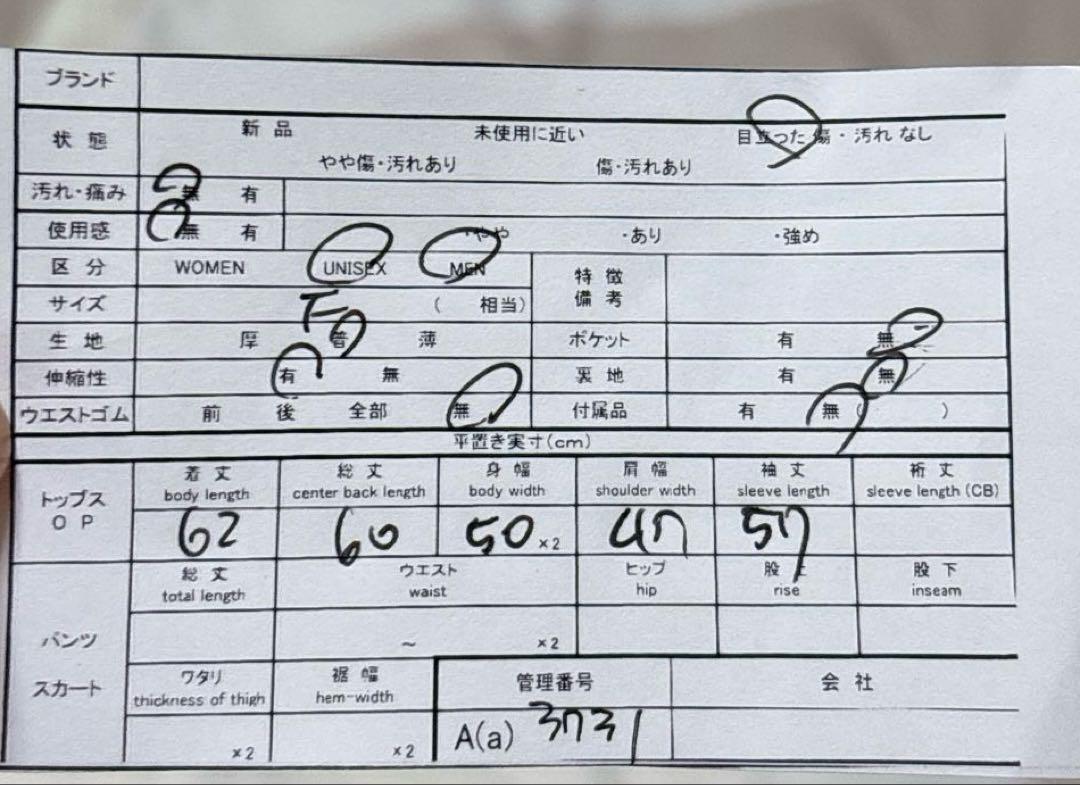 ブランド
状態 新品 未使用に近い 目立った傷・汚れなし
やや傷・汚れあり 傷・汚れあり
汚れ・痛み 無 有
使用感 無 有 ・やや ・あり ・強め
区分 WOMEN UNISEX MEN 特徴
備考
サイズ F (相当)
生地 厚 普 薄 ポケット 有 無
伸縮性 有 無 裏地 有 無
ウエストゴム 前 後 全部 無 付属品 有 無 ( )
平置き実寸(cm)
トップス
OP
着丈 総丈 身幅 肩幅 袖丈 裄丈
body length center back length body width shoulder width sleeve length sleeve length (CB)
62 60 50 ×2 47 57
パンツ
スカート
総丈 ウエスト ヒップ 股上 股下
total length waist hip rise inseam
~ ×2
ワタリ 裾幅 管理番号 会社
thickness of thigh hem-width
×2 ×2 A(a) 3731